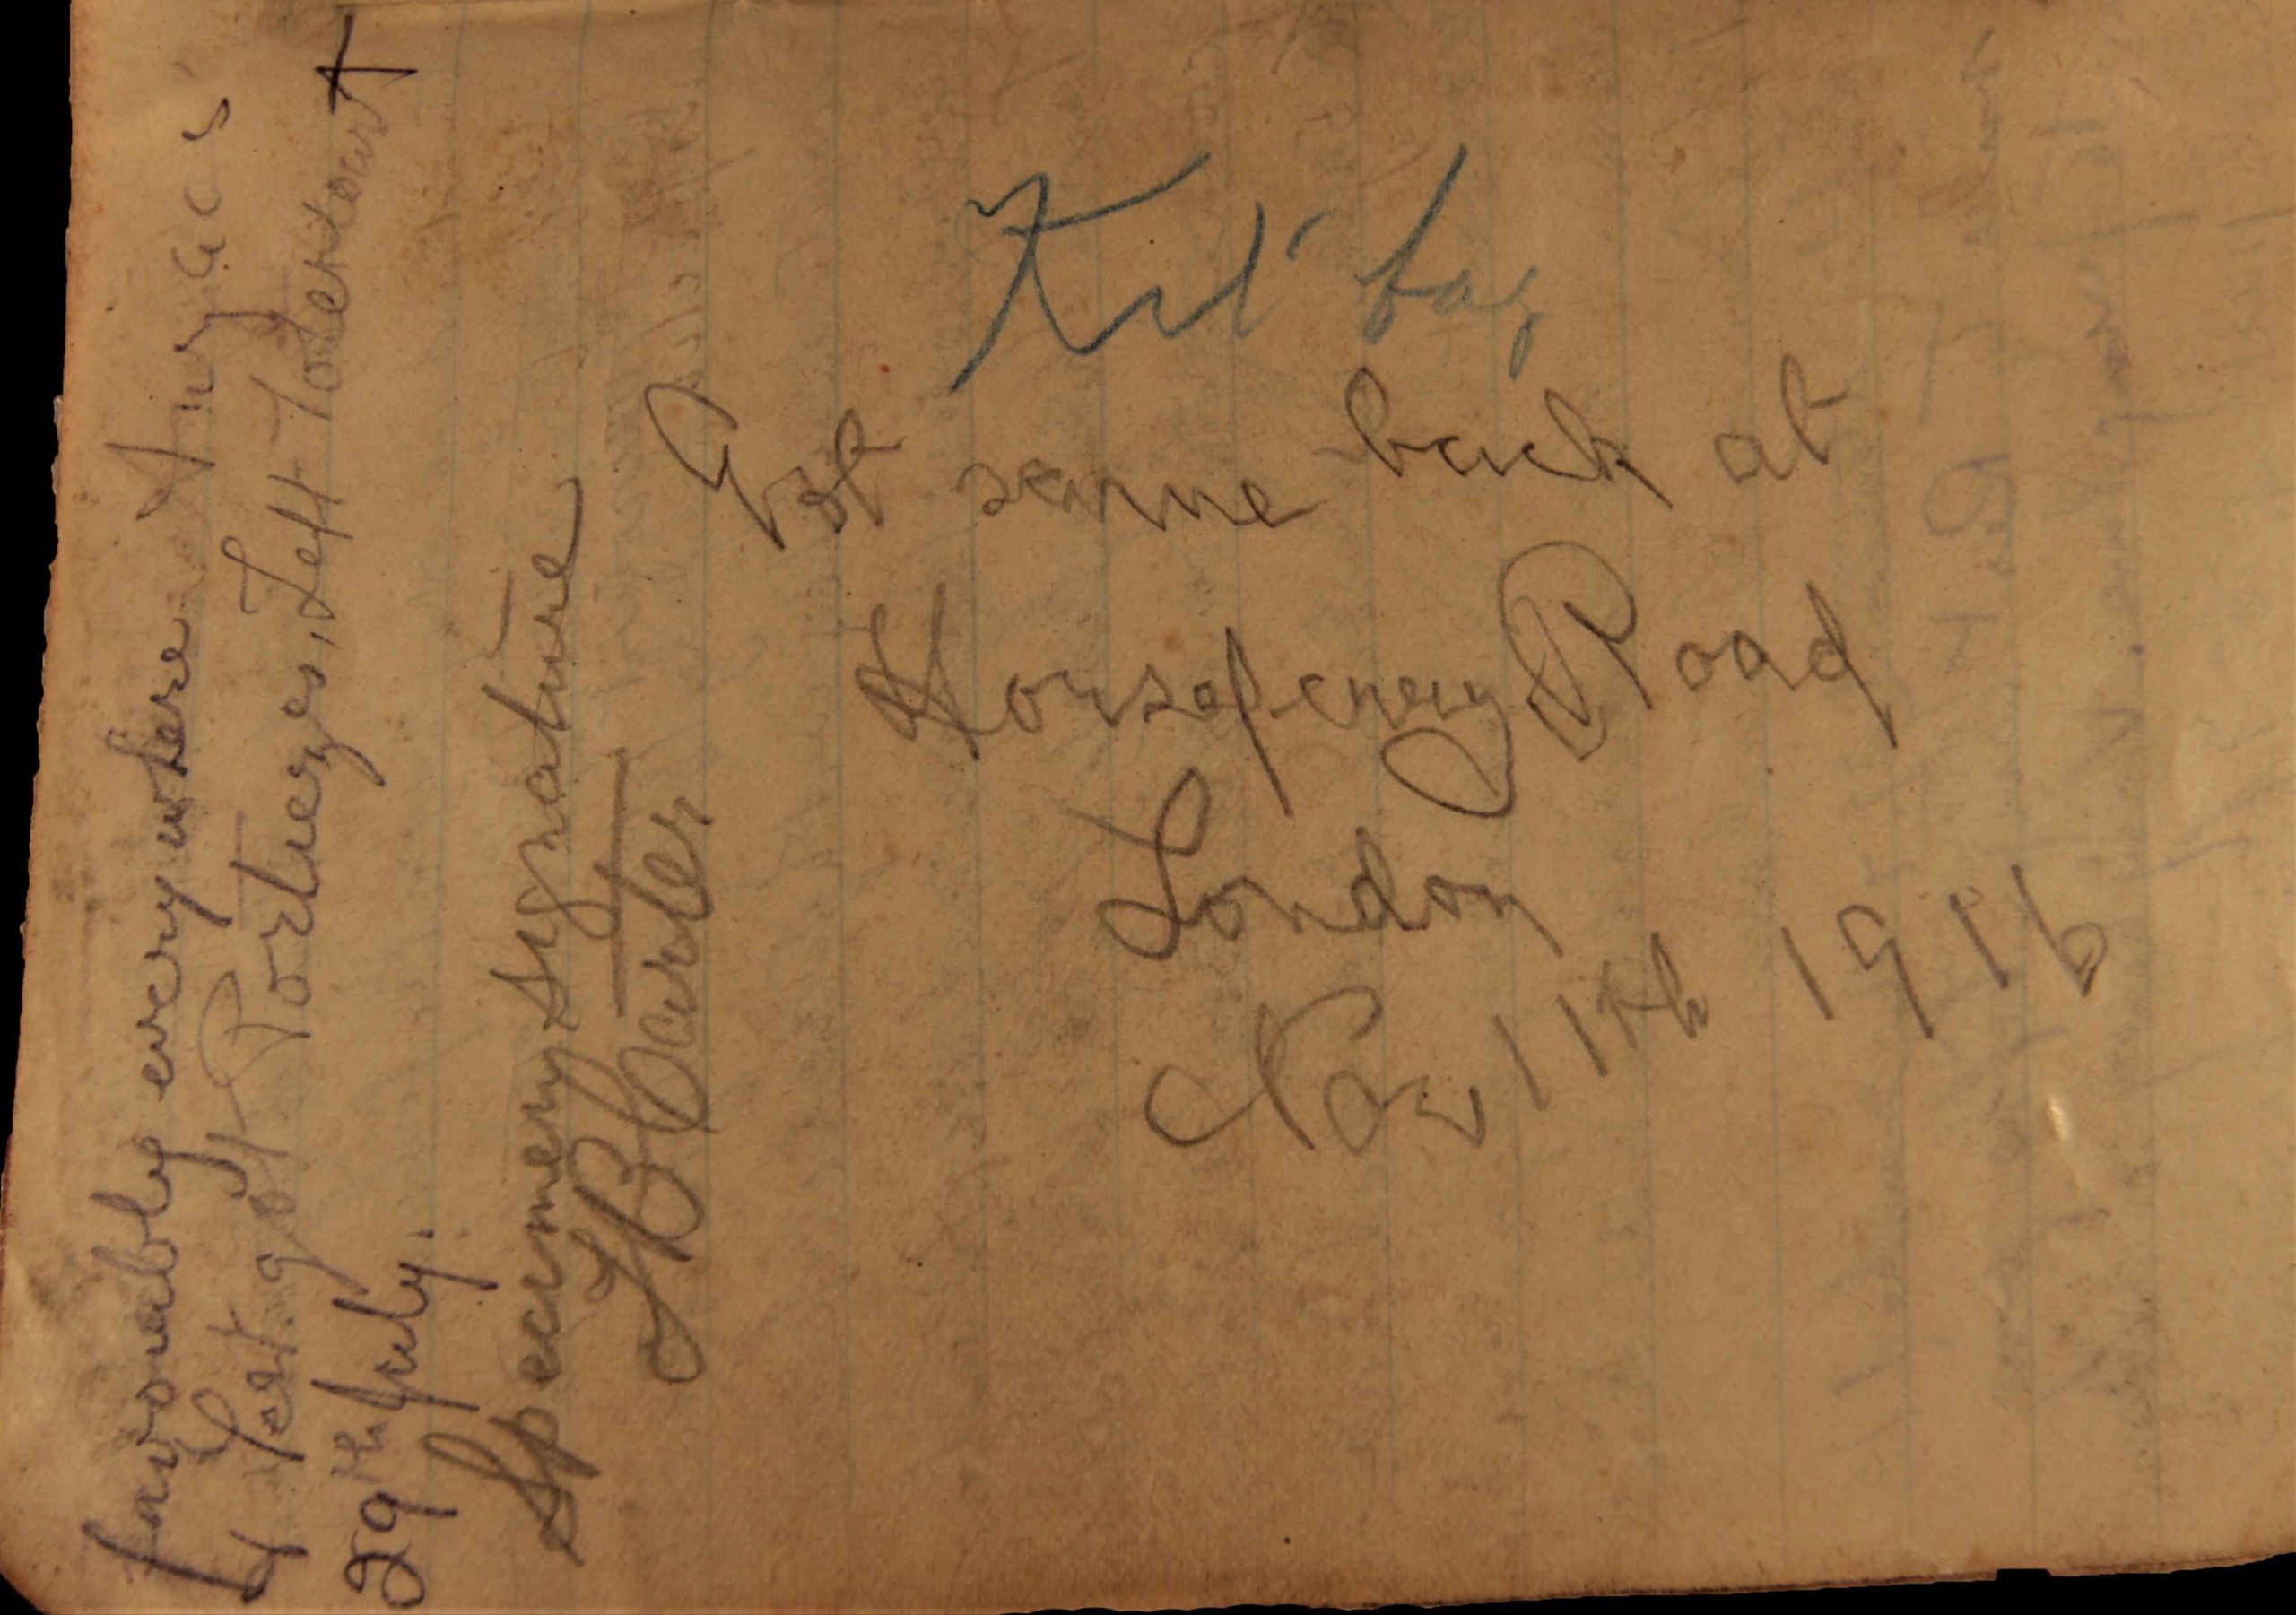 favorably every where Anzacs
& Yeat. got Portueges, Left Todentown
29th July.
Specimen signature
LB Carter
Kit bag
Got same back at
Horseferry Road
London
Nov 11th 1916